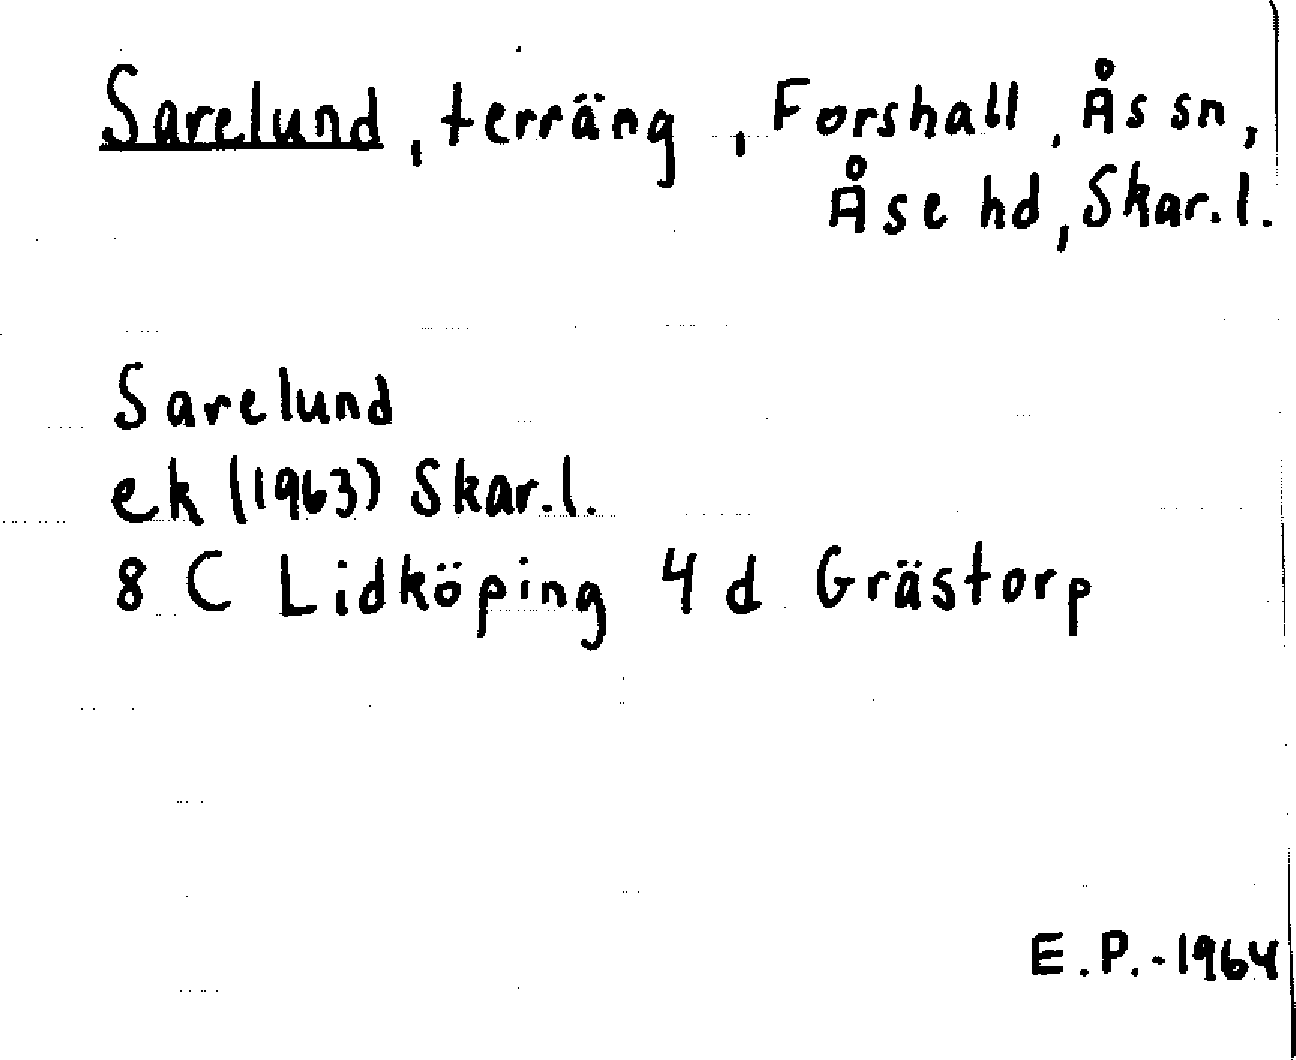 Sarelund, terräng, Forshall, Ås sn,
Åse hd, Skar.l.
Sarelund
ek (1963) Skar.l.
8 C Lidköping 4 d Grästorp
E.P.-1964